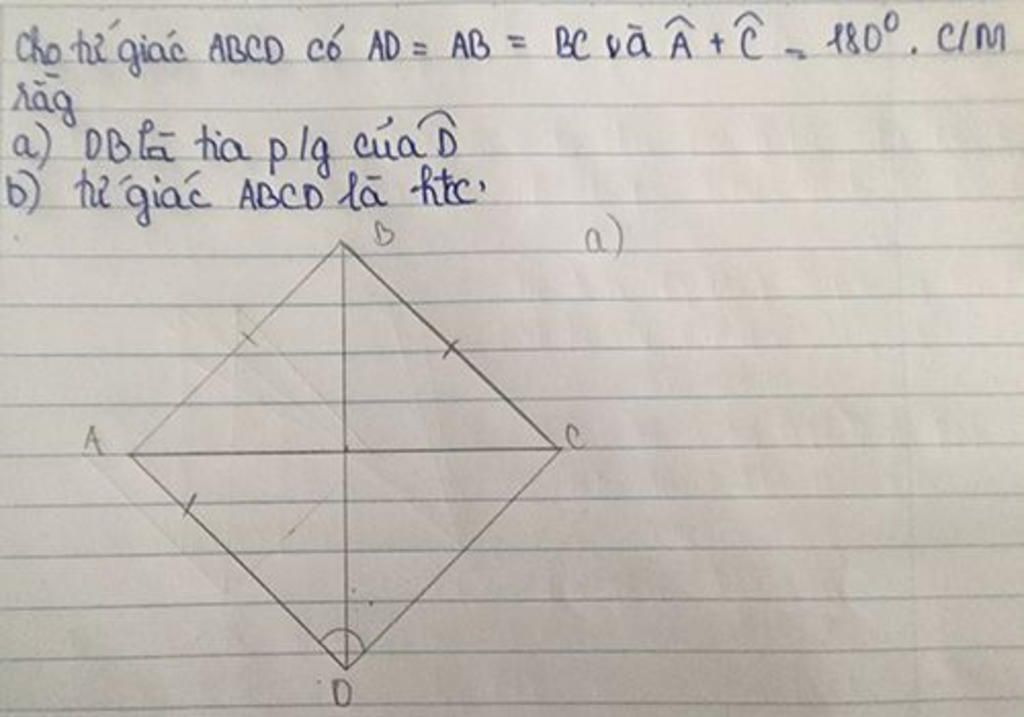 Cho tứ giác ABCD có AD = AB = BC và Â + Ĉ = 180⁰. C/M
rằg
a) DB là tia p/g của D̂
b) tứ giác ABCD là htc.
B
a)
A
C
D